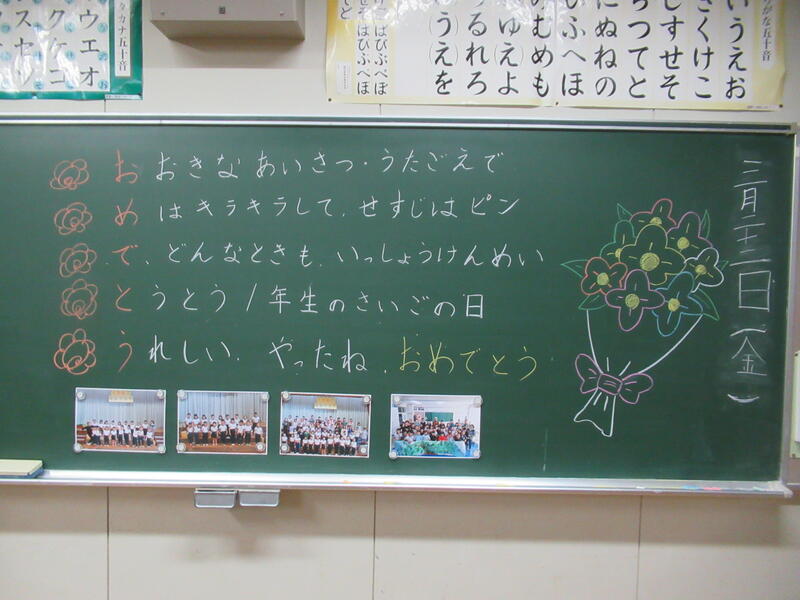 おおきなあいさつ・うたごえで
めはキラキラして、せすじはピン
で、どんなときも、いっしょうけんめい
とうとう1年生のさいごの日
うれしい、やったね、おめでとう
三月二十二日(金)
タカナ五十音
ウエオ
クケコ
スセソ
がな五十音
いうえお
くけこ
しすせそ
つてと
にぬねの
ひふへほ
むめも
ゆえよ
るれろ
うえを